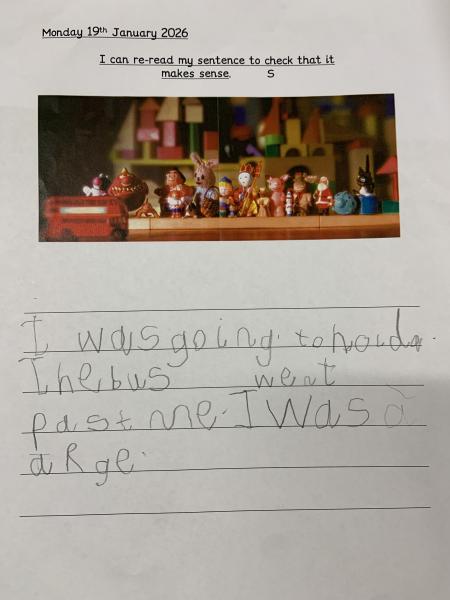 Monday 19th January 2026
I can re-read my sentence to check that it
makes sense. S
I was going. to
The bus went
past me. I was a
aRge.